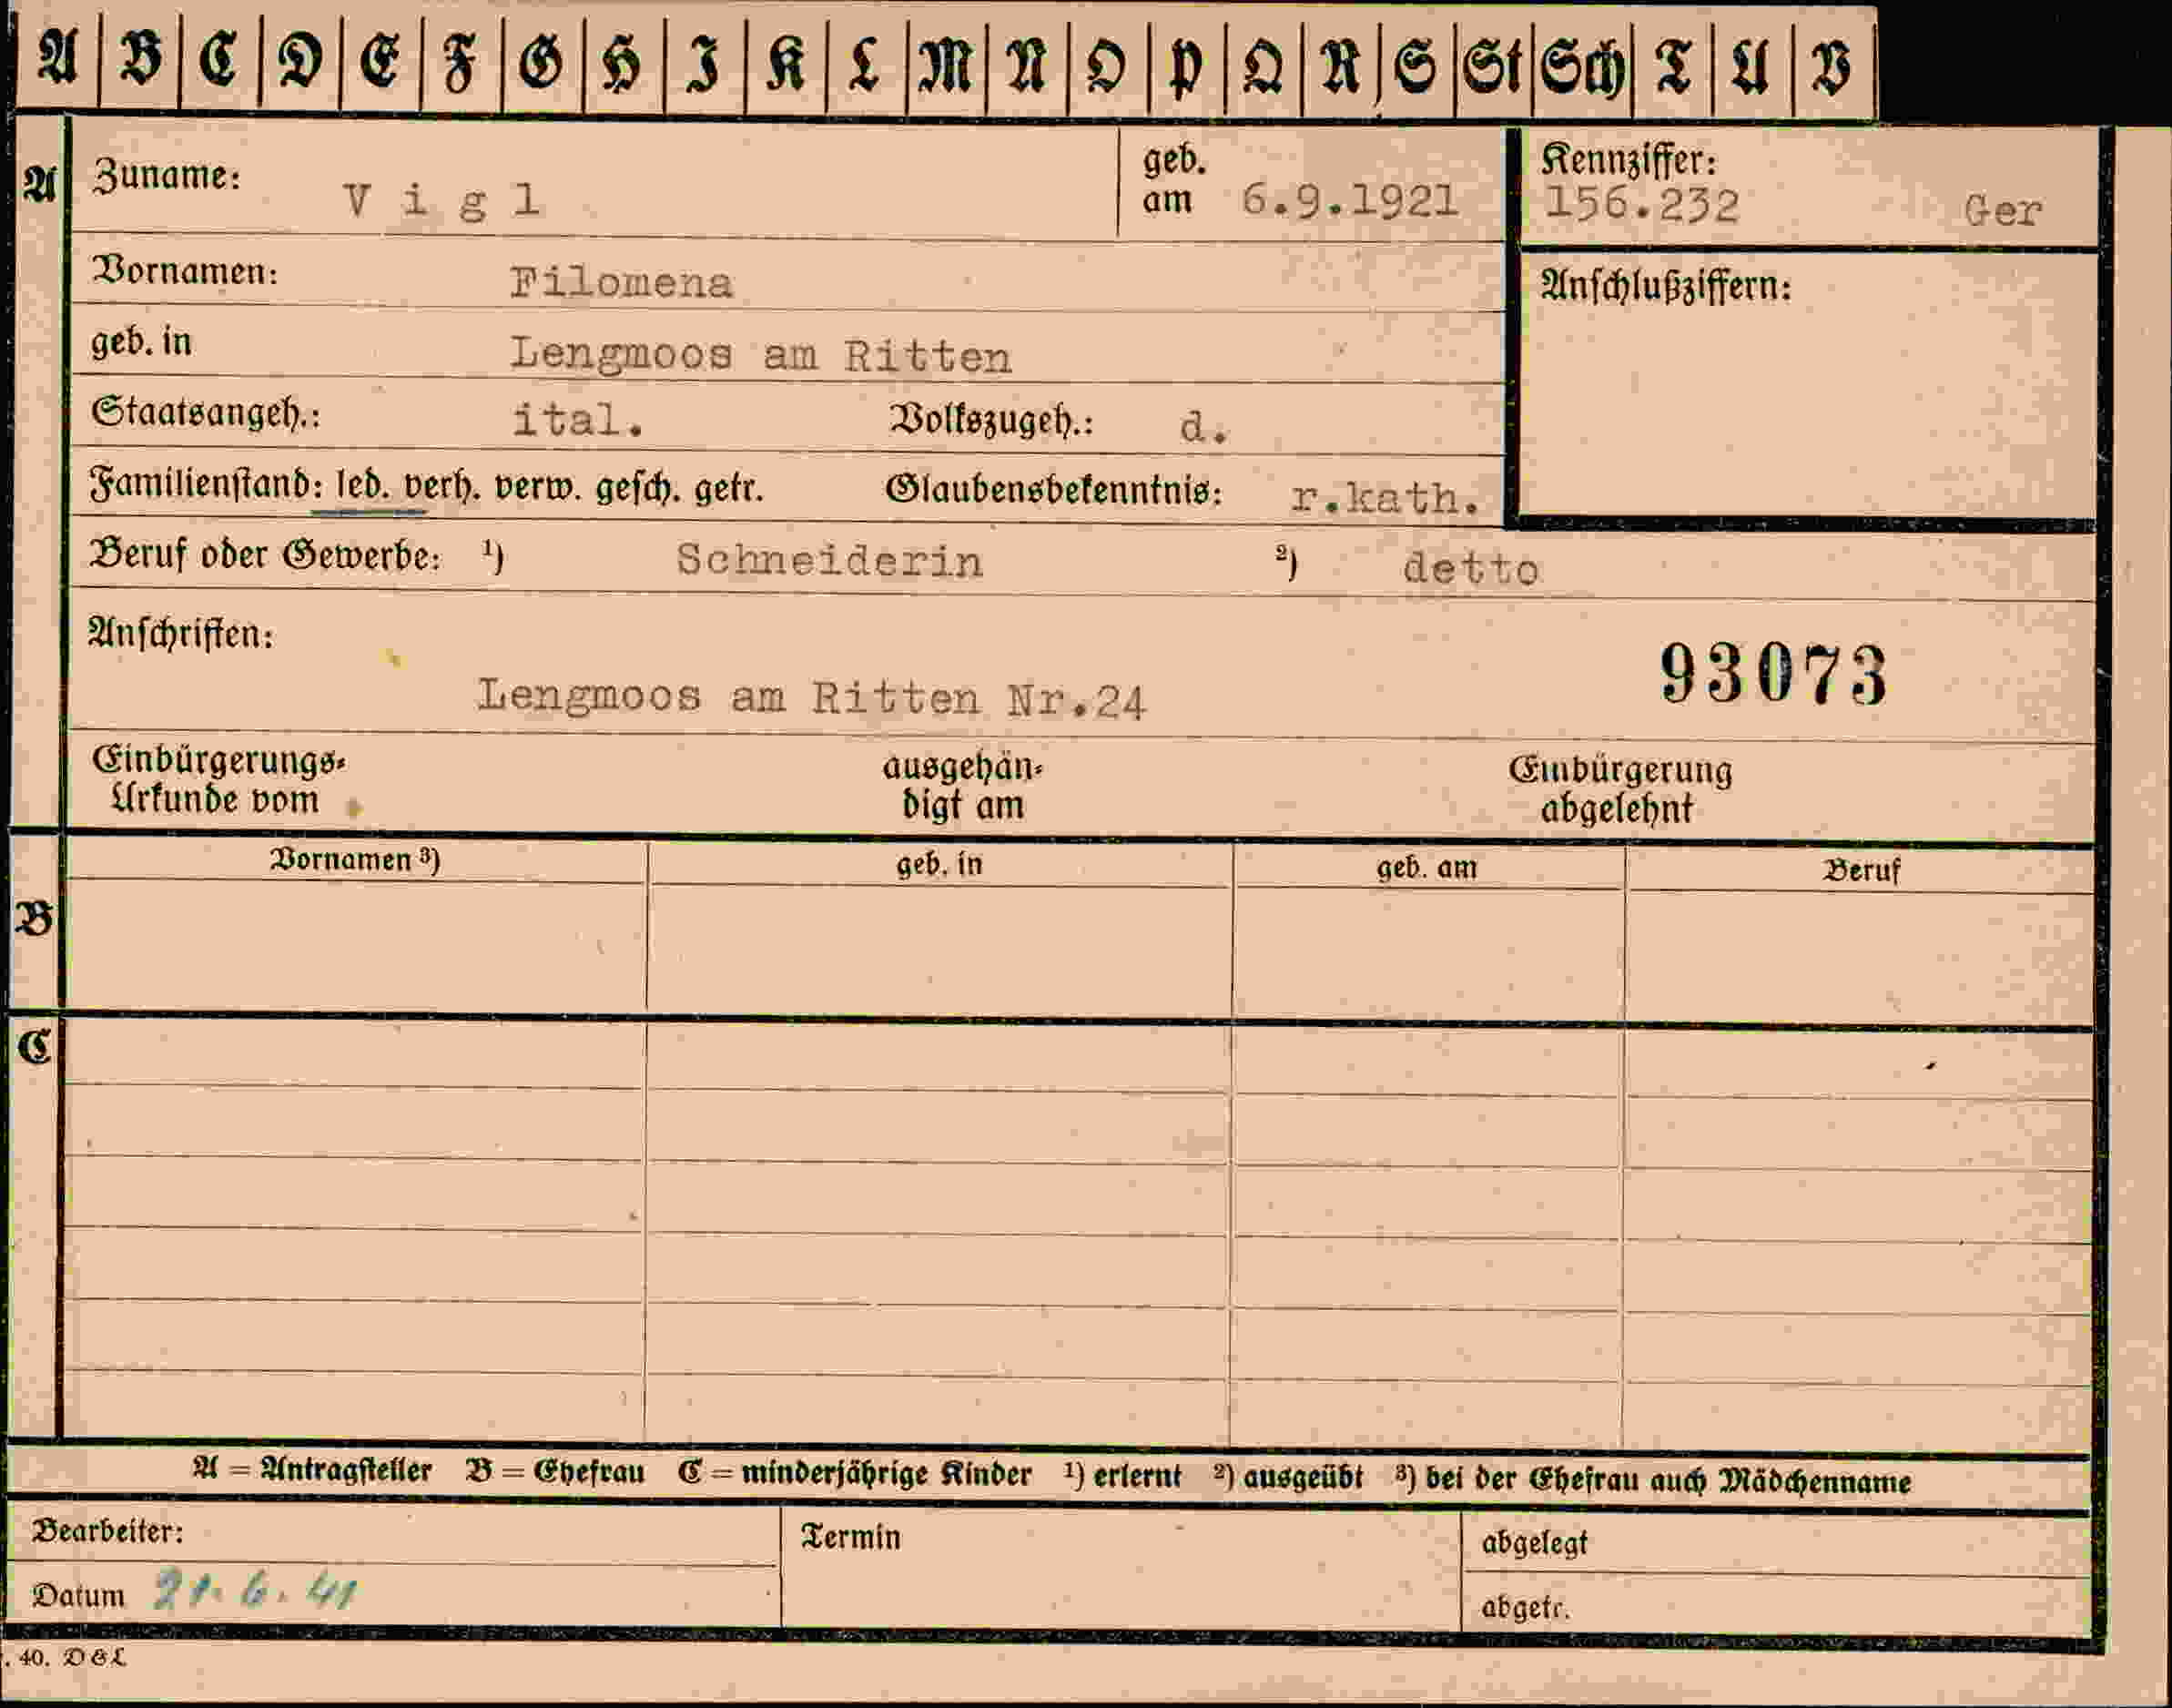 A B C D E F G H I K L M N O P Q R S St Sch T U V
A Zuname: Vigl geb. am 6.9.1921 Kennziffer: 156.232 Ger
Vornamen: Filomena Anschlußziffern:
geb. in Lengmoos am Ritten
Staatsangeh.: ital. Volkszugeh.: d.
Familienstand: led. verh. verw. gesch. getr. Glaubensbekenntnis: r.kath.
Beruf oder Gewerbe: 1) Schneiderin 2) detto
Anschriften:
93073
Lengmoos am Ritten Nr.24
Einbürgerungs- ausgehän- Einbürgerung
Urkunde vom digt am abgelehnt
Vornamen 3) geb. in geb. am Beruf
B
C
A = Antragsteller B = Ehefrau C = minderjährige Kinder 1) erlernt 2) ausgeübt 3) bei der Ehefrau auch Mädchenname
Bearbeiter: Termin abgelegt
Datum 21.6.41 abgetr.
. 40. D&L